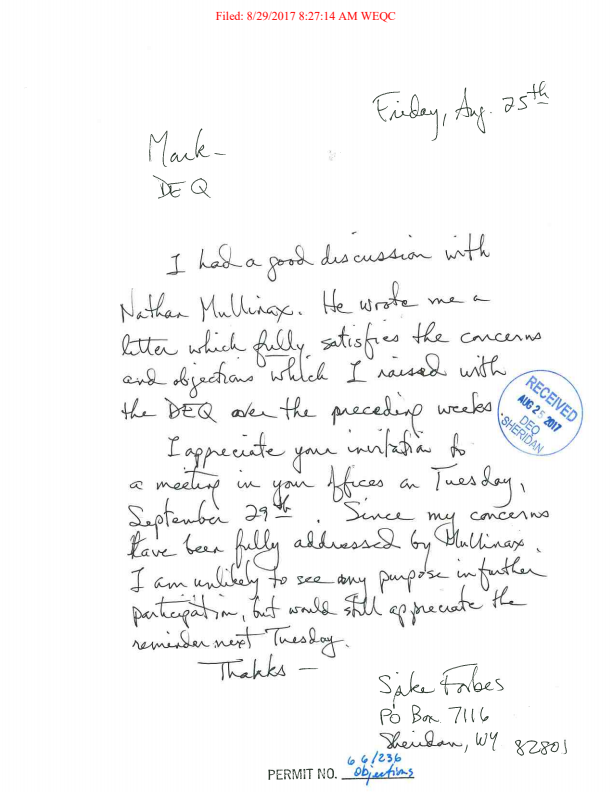 Filed: 8/29/2017 8:27:14 AM WEQC
Friday, Aug. 25th
Mark-
DEQ
I had a good discussion with
Nathan Mullinax. He wrote me a
letter which fully satisfies the concerns
and objections which I raised with
the DEQ over the preceding weeks
RECEIVED
AUG 25 2017
DEQ
SHERIDAN
I appreciate your invitation to
a meeting in your offices on Tuesday,
September 29th. Since my concerns
have been fully addressed by Mullinax,
I am unlikely to see any purpose in further
participation, but would still appreciate the
reminder next Tuesday.
Thanks -
Spike Forbes
PO Box 7116
Sheridan, WY 82801
66/236
PERMIT NO. Objections